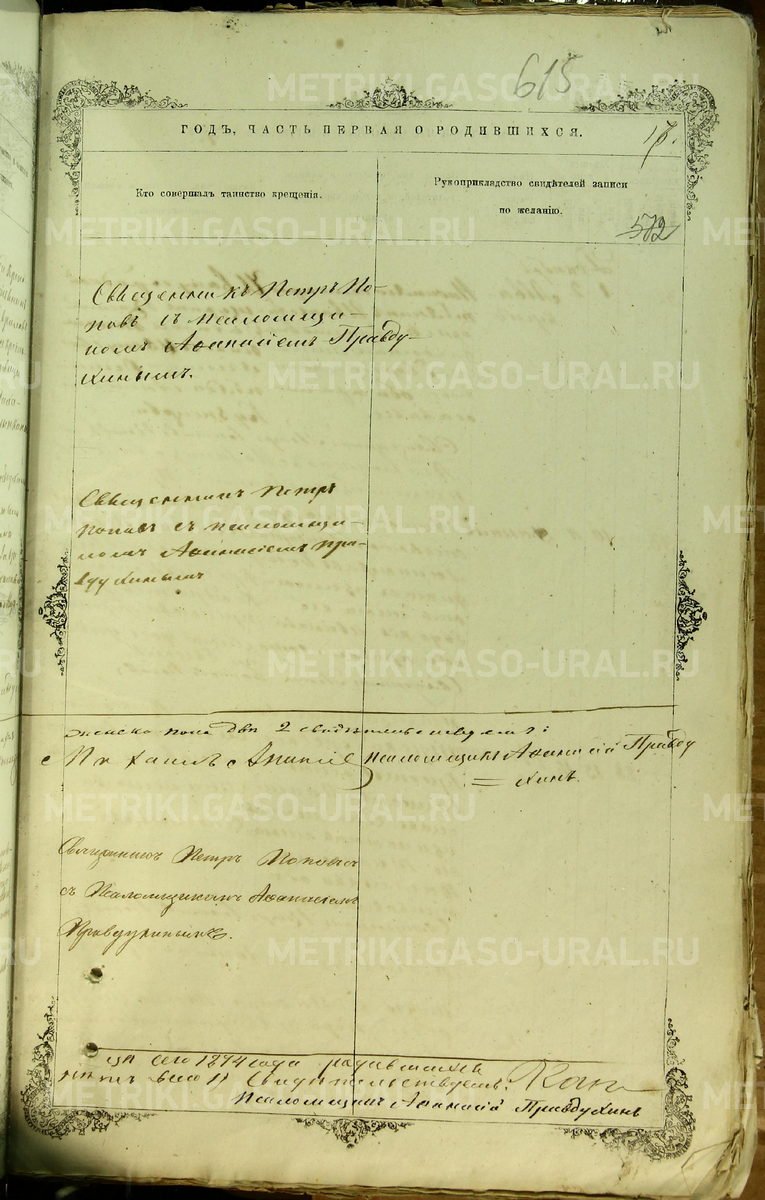 615
ГОДЪ, ЧАСТЬ ПЕРВАЯ О РОДИВШИХСЯ.
17.
Кто совершалъ таинство крещенія.
Рукоприкладство свидѣтелей записи
по желанію.
572
Священникъ Петръ По-
повъ съ псаломщи-
комъ Аѳанасіемъ Правду-
хинымъ.
Священникъ Петръ
Поповъ съ псаломщи-
комъ Аѳанасіемъ Пра-
вдухинымъ
женска пола двѣ 2 свидѣтельствуемъ:
Псаломщикъ Аѳанасій Правду
=хинъ.
Священникъ Петръ Поповъ
съ Псаломщикомъ Аѳанасіемъ
Правдухинымъ.
сего 1874 года родившихся
всего 11 Свидѣтельствуемъ:
Псаломщикъ Аѳанасій Правдухинъ
METRIKI.GASO-URAL.RU